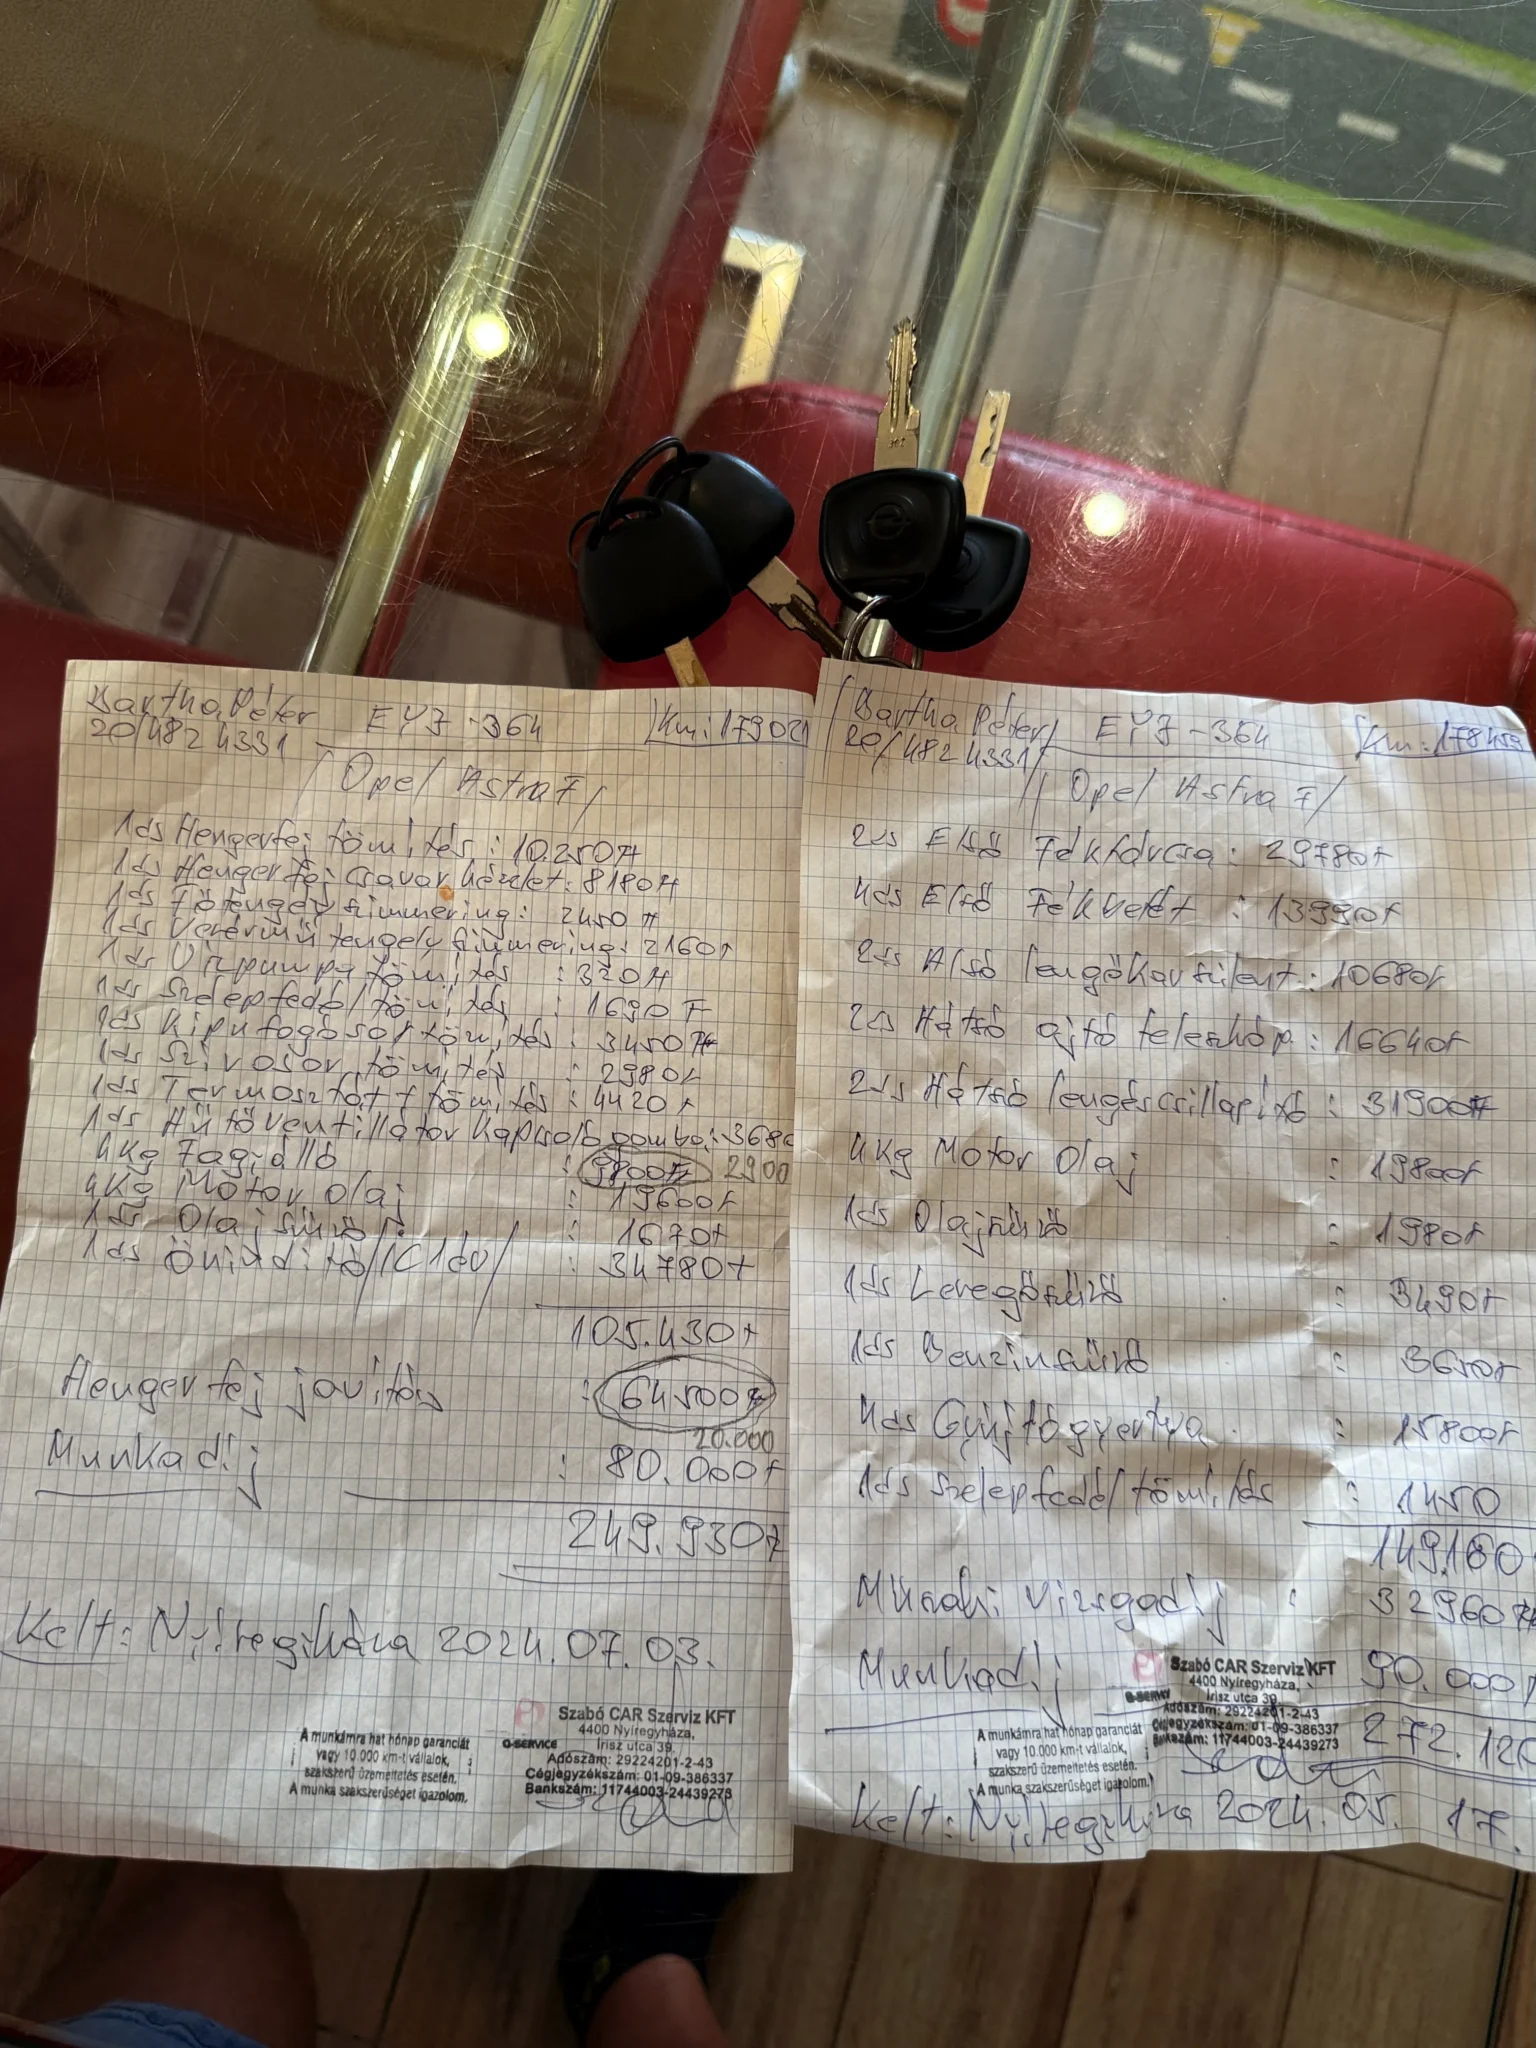 Bartha Péter
20/482 4331
EYJ-364
Km: 179021
Opel Astra F
1ds Hengerfej tömítés : 10.250 Ft
1ds Hengerfej csavar készlet : 8180 Ft
1ds Főtengely szimmering : 2450 Ft
1ds Vezérmű tengely szimmering : 2160 Ft
1ds Vízpumpa tömítés : 320 Ft
1ds Szelepfedél tömítés : 1690 F
1ds Kipufogósor tömítés : 3450 Ft
1ds Szívósor tömítés : 2980 Ft
1ds Termosztát + tömítés : 4420 Ft
1ds Hűtőventillátor kapcsoló gomba : 3680
4Kg Fagyálló : 9800 Ft 2900
4Kg Motor Olaj : 19600 Ft
1ds Olajszűrő : 1670 Ft
1ds Önindító : 34780 Ft
105.430 Ft
Hengerfej javítás : 64500 Ft
20.000
Munkadíj : 80.000 Ft
249.930 Ft
Kelt: Nyíregyháza 2024.07.03.
A munkámra hat hónap garanciát
vagy 10.000 km-t vállalok,
szakszerű üzemeltetés esetén.
A munka szakszerűséget igazolom.
G-SERVICE
Szabó CAR Szerviz KFT
4400 Nyíregyháza,
Írisz utca 39.
Adószám: 29224201-2-43
Cégjegyzékszám: 01-09-386337
Bankszám: 11744003-24439273
Bartha Péter
20/482 4331
EYJ-364
Km: 178459
Opel Astra F
2ds Első Féktárcsa : 29780 Ft
4ds Első Fékbetét : 13990 Ft
2ds Alsó lengőkarszilent : 10680 Ft
2ds Hátsó ajtó teleszkóp : 16640 Ft
2ds Hátsó lengéscsillapító : 31900 Ft
4Kg Motor Olaj : 19800 Ft
1ds Olajszűrő : 1980 Ft
1ds Levegőszűrő : 3490 Ft
1ds Benzinszűrő : 3650 Ft
4ds Gyújtógyertya : 15800 Ft
1ds Szelepfedél tömítés : 1450
149.160
Műszaki vizsgadíj : 32960 Ft
Munkadíj 90.000 Ft
272.120
Kelt: Nyíregyháza 2024.05. 17.
A munkámra hat hónap garanciát
vagy 10.000 km-t vállalok,
szakszerű üzemeltetés esetén.
A munka szakszerűséget igazolom.
G-SERVICE
Szabó CAR Szerviz KFT
4400 Nyíregyháza,
Írisz utca 39.
Adószám: 29224201-2-43
Cégjegyzékszám: 01-09-386337
Bankszám: 11744003-24439273